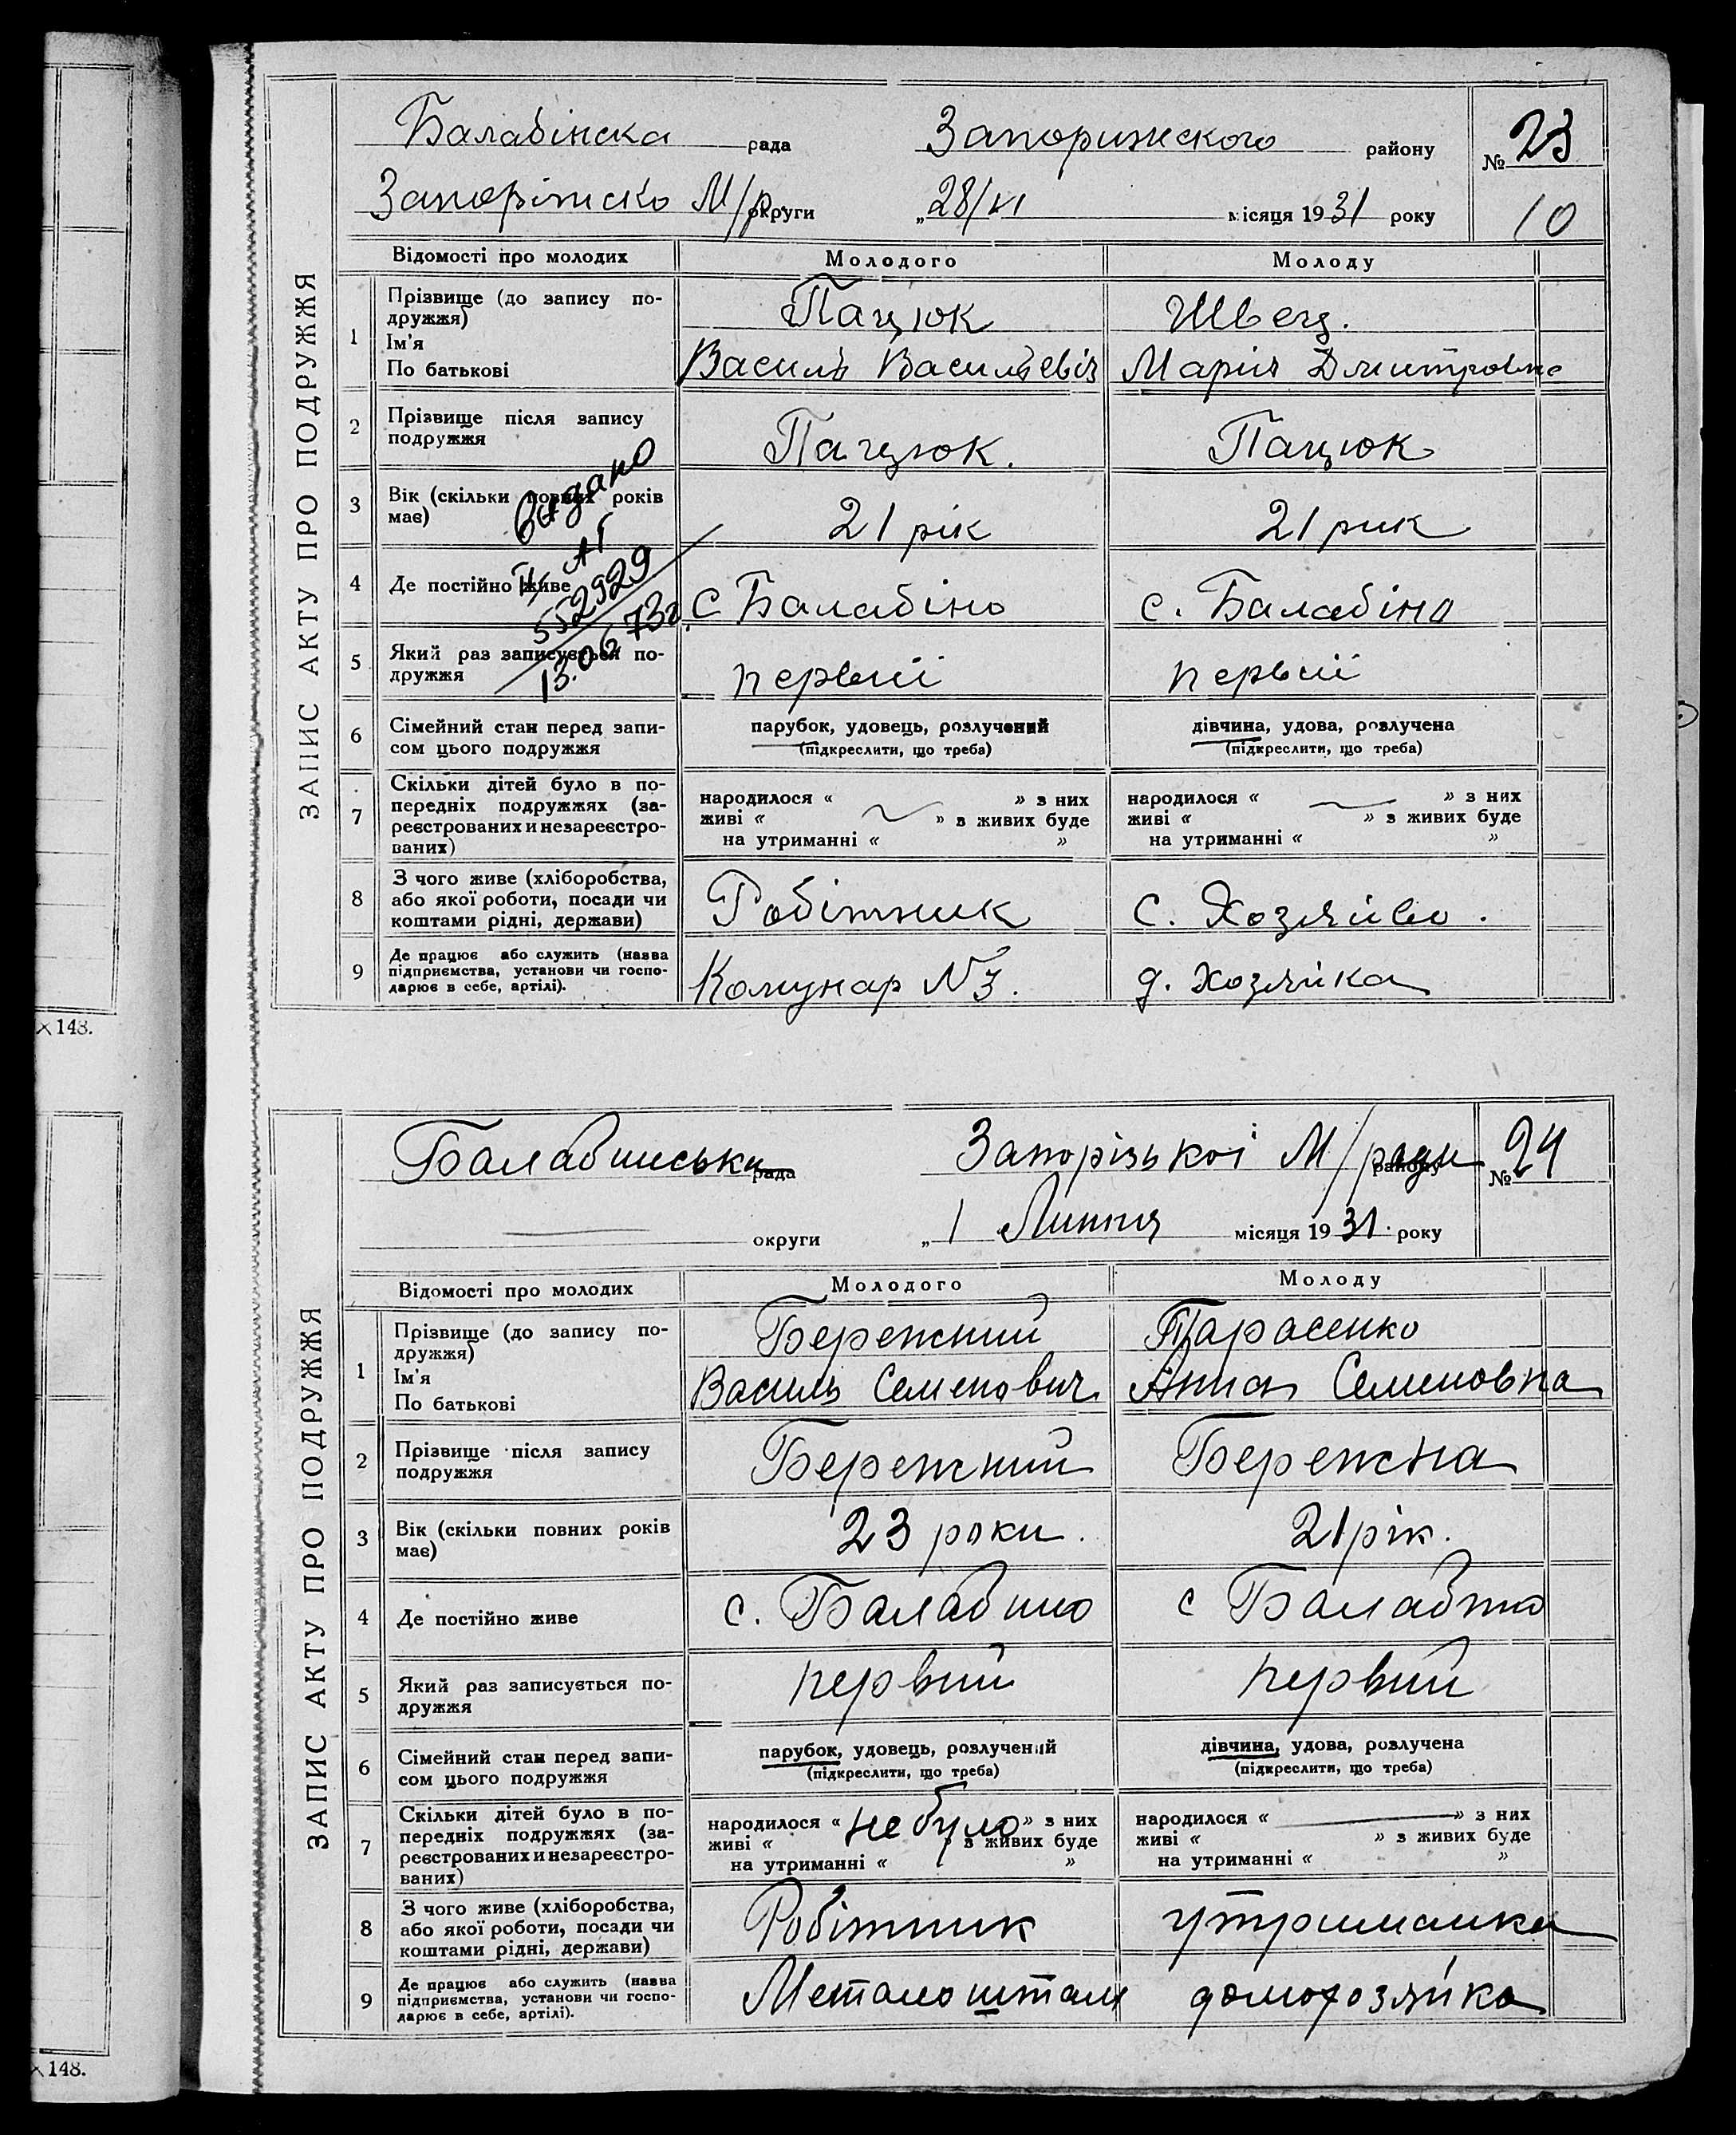 ЗАПИС АКТУ ПРО ПОДРУЖЖЯ
Балабінска рада Запорижского району № 23
Запоріжско М/р. округи „28/VI місяця 1931 року 10
Відомості про молодих Молодого Молоду
1 Прізвище (до запису по-
дружжя) Пацюк Швец.
Ім'я
По батькові Василь Васильевіч Марія Дмитровна
2 Прізвище після запису
подружжя Пацюк. Пацюк
3 Вік (скільки повних років
має) 21 рік 21 рик
видано
II-АГ
552929
13.06 73г.
4 Де постійно живе с Балабіно с. Балабіно
5 Який раз записується по-
дружжя первий первий
6 Сімейний стан перед запи-
сом цього подружжя
парубок, удовець, розлучений дівчина, удова, розлучена
(підкреслити, що треба) (підкреслити, що треба)
7 Скільки дітей було в по-
передніх подружжях (за-
реєстрованих и незареєстро-
ваних)
народилося « » з них народилося « » з них
живі « » з живих буде живі « » з живих буде
на утриманні « » на утриманні « »
8 З чого живе (хліборобства,
або якої роботи, посади чи
коштами рідні, держави) Робітник С. Хозяйво.
9 Де працює або служить (назва
підприємства, установи чи госпо-
дарює в себе, артілі). Комунар №3. д. хозяйка
×148.
ЗАПИС АКТУ ПРО ПОДРУЖЖЯ
Балабинська рада Запорізькоі М/ради району № 24
округи „1 Липня місяця 1931. року
Відомості про молодих Молодого Молоду
1 Прізвище (до запису по-
дружжя) Бережний Тарасенко
Ім'я
По батькові Василь Семенович Анна Семеновна
2 Прізвище після запису
подружжя Бережний Бережна
3 Вік (скільки повних років
має) 23 роки. 21 рік.
4 Де постійно живе с. Балабино с Балабино
5 Який раз записується по-
дружжя первий первий
6 Сімейний стан перед запи-
сом цього подружжя
парубок, удовець, розлучений дівчина, удова, розлучена
(підкреслити, що треба) (підкреслити, що треба)
7 Скільки дітей було в по-
передніх подружжях (за-
реєстрованих и незареєстро-
ваних)
народилося « не було » з них народилося « » з них
живі « » з живих буде живі « » з живих буде
на утриманні « » на утриманні « »
8 З чого живе (хліборобства,
або якої роботи, посади чи
коштами рідні, держави) Робітник утриманка
9 Де працює або служить (назва
підприємства, установи чи госпо-
дарює в себе, артілі). Металоштам домохозяйка
×148.